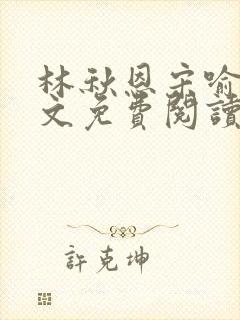 林秋恩宋喻
文免費閱讀
許克坤